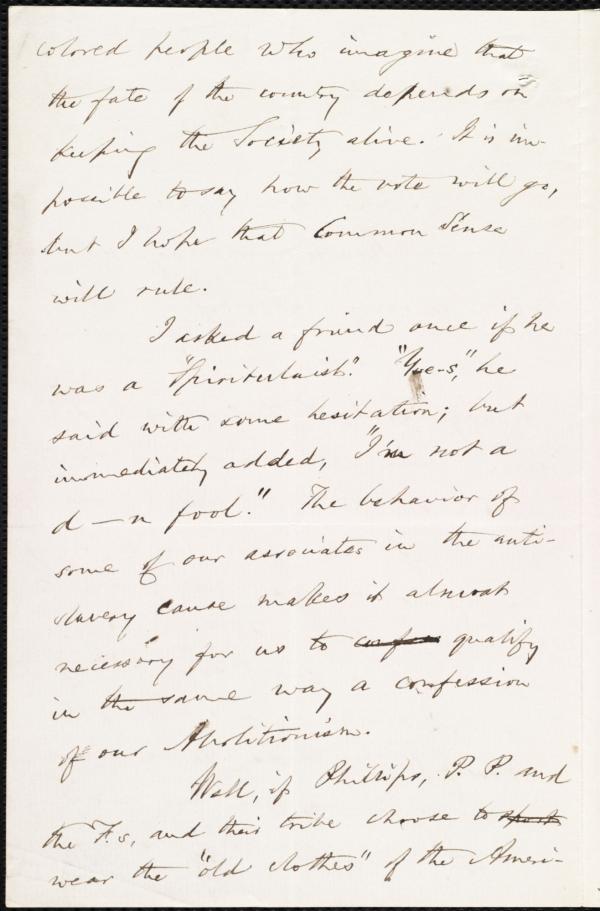 colored people who imagine that
the fate of the country depends on
keeping the Society alive. It is im-
possible to say how the vote will go,
but I hope that Common Sense
will rule.
I asked a friend once if he
was a "Spiritualist". "Y-e-s," he
said with some hesitation; but
immediately added, "I'm not a
d—n fool." The behavior of
some of our associates in the anti-
slavery cause makes it almost
necessary for us to confess qualify
in the same way a confession
of our Abolitionism.
Well, if Phillips, P. P. and
the F.s, and their tribe choose to
wear the "old clothes" of the Ameri-